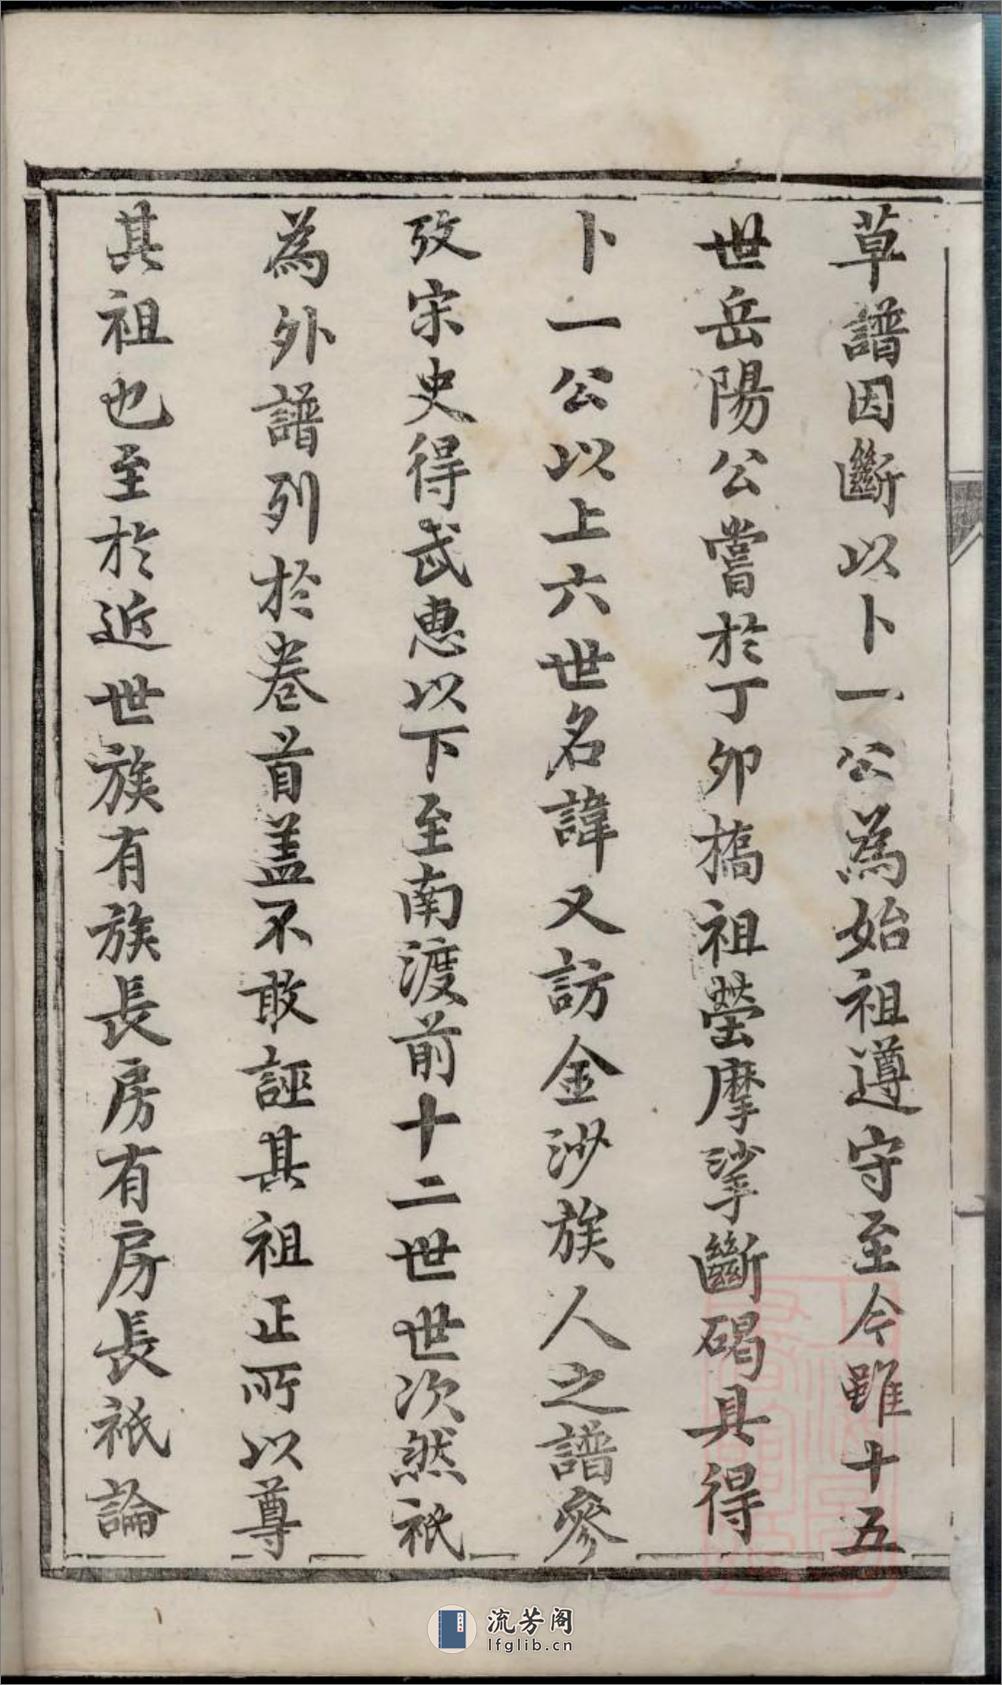 草譜因斷以卜一公為始祖遵守至今雖十五
世岳陽公嘗於丁卯橋祖塋摩挲斷碣具得
卜一公以上六世名諱又訪金沙族人之譜參
攷宋史得武惠以下至南渡前十二世世次然祇
為外譜列於卷首盖不敢誣其祖正所以尊
其祖也至於近世族有族長房有房長祇論
流芳阁
lfglib.cn